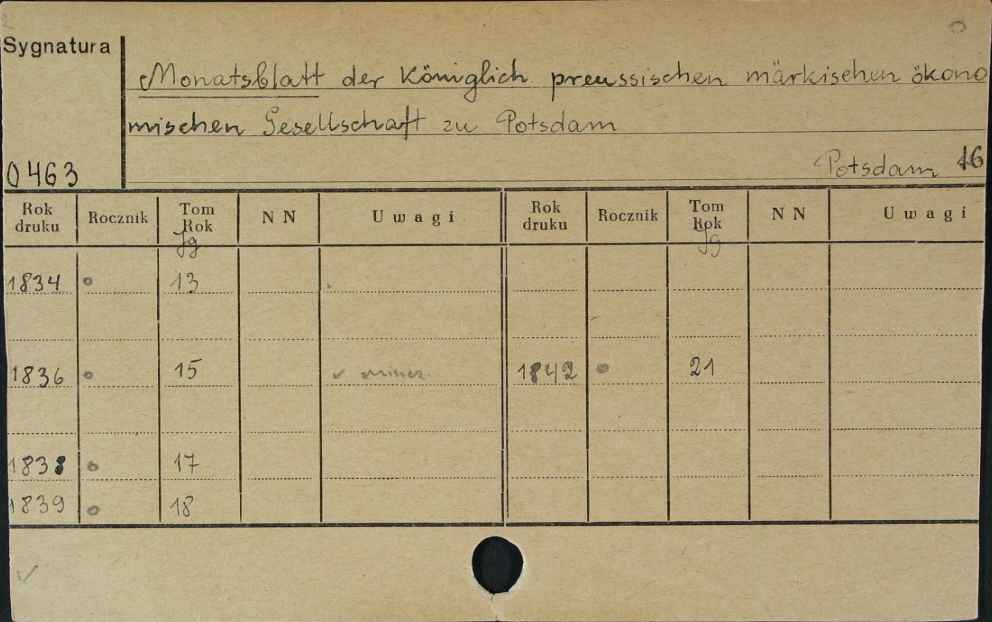 Sygnatura
Monatsblatt der Königlich preussischen märkischen ökono
mischen Gesellschaft zu Potsdam
0463
Potsdam 16
Rok druku Rocznik Tom Rok NN Uwagi Rok druku Rocznik Tom Rok NN Uwagi
Jg Jg
1834 13
1836 15 1842 21
1838 17
1839 18